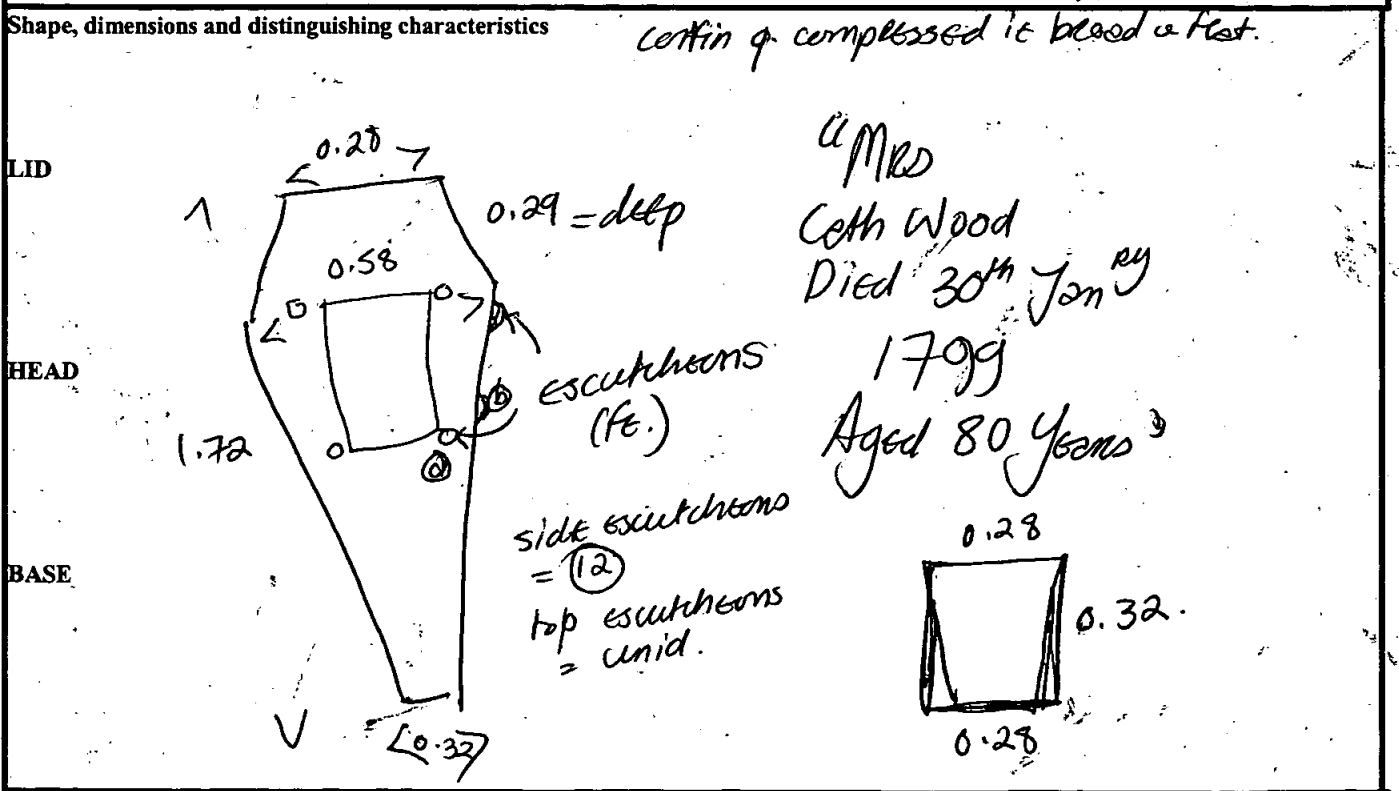 Shape, dimensions and distinguishing characteristics
coffin q. compressed ie broad & flat.
LID
HEAD
BASE
0.28
0.29 = deep
0.58
1.72
escutcheons
(fe.)
a
b
side escutcheons
= 12
top escutcheons
= unid.
0.32
"Mrs
Cath Wood
Died 30th Janry
1799
Aged 80 Years"
0.28
0.32.
0.28